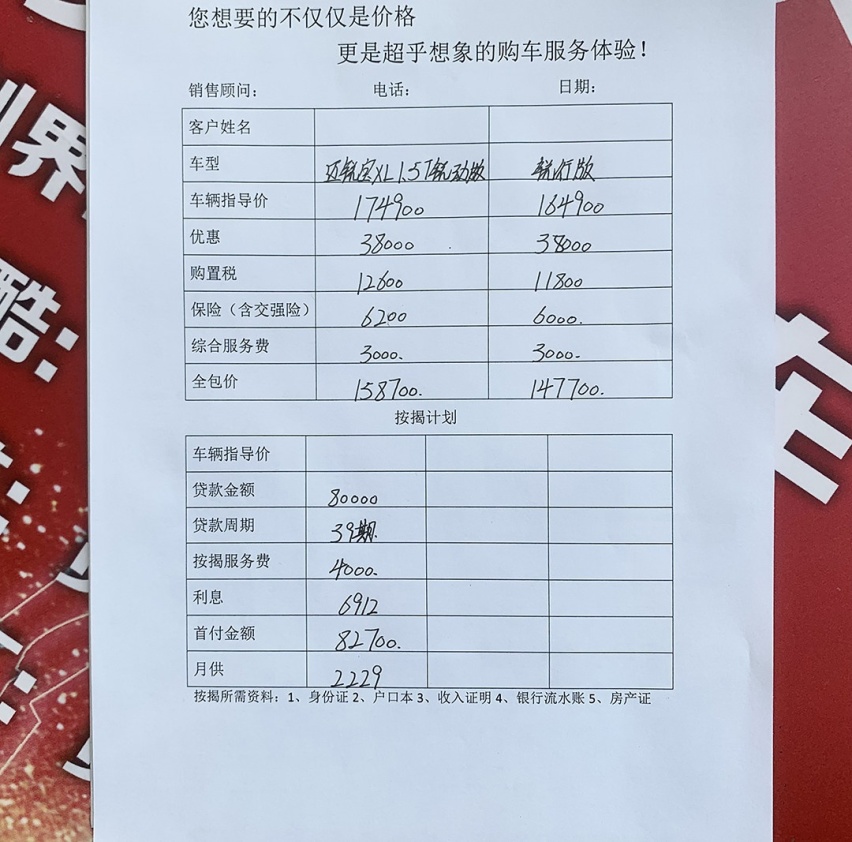 您想要的不仅仅是价格
更是超乎想象的购车服务体验！
销售顾问： 电话： 日期：
客户姓名
车型 迈锐宝XL 1.5T锐动版 锐行版
车辆指导价 174900 164900
优惠 38000 38000
购置税 12600 11800
保险（含交强险） 6200 6000.
综合服务费 3000. 3000.
全包价 158700. 147700.
按揭计划
车辆指导价
贷款金额 80000
贷款周期 39期.
按揭服务费 4000.
利息 6912
首付金额 82700.
月供 2229
按揭所需资料：1、身份证 2、户口本 3、收入证明 4、银行流水账 5、房产证
界
酷：
车